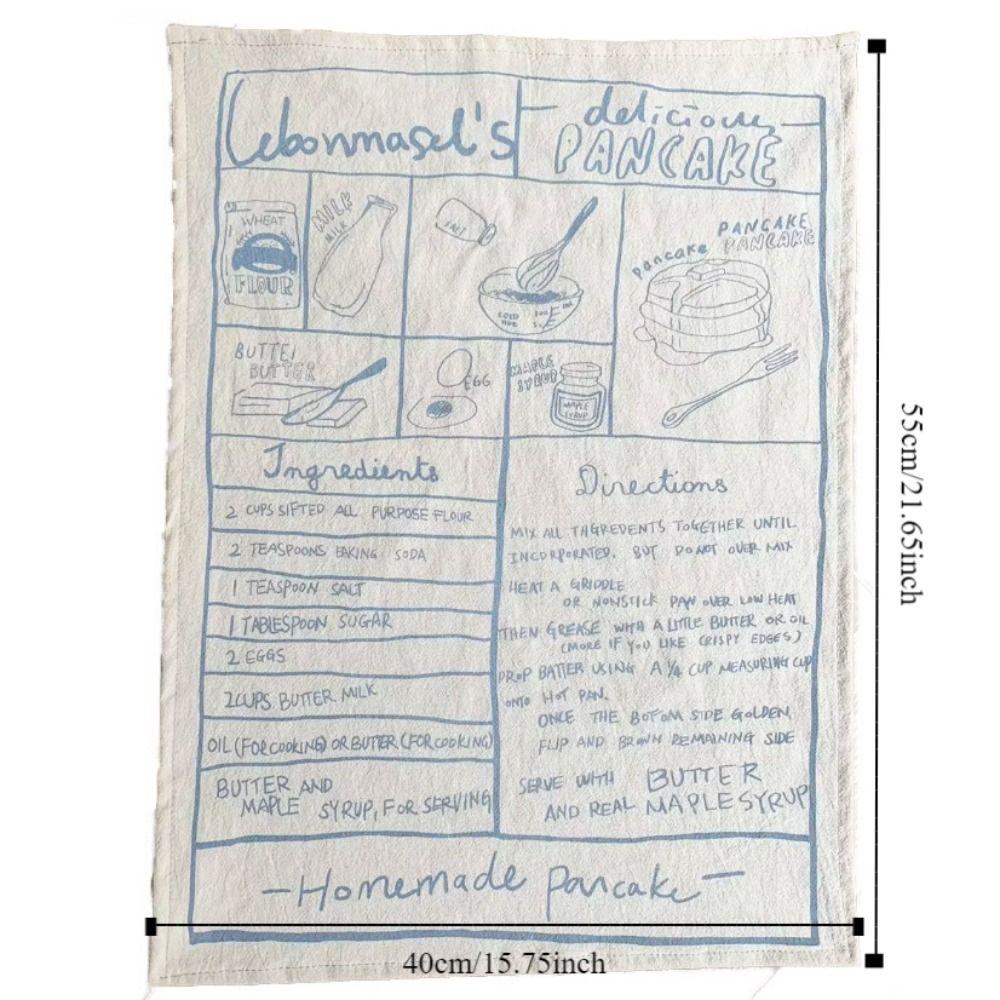 Lebonmasel's
delicious
PANCAKE
WHEAT
FLOUR
MILK
MILK
SALT
COLD
HOT
PANCAKE
PANCAKE
pancake
BUTTE
BUTTER
EGG
MAPLE
SYRUP
MAPLE
SYRUP
Ingredients
2 CUPS SIFTED ALL PURPOSE FLOUR
2 TEASPOONS BAKING SODA
1 TEASPOON SALT
1 TABLESPOON SUGAR
2 EGGS
2 CUPS BUTTER MILK
OIL (FOR COOKING) OR BUTTER (FOR COOKING)
BUTTER AND
MAPLE SYRUP, FOR SERVING
Directions
MIX ALL THGREDENTS TOGETHER UNTIL
INCORPORATED, BUT DO NOT OVER MIX
HEAT A GRIDDLE
OR NONSTICK PAN OVER LOW HEAT
THEN GREASE WITH A LITTLE BUTTER OR OIL
(MORE IF YOU LIKE CRISPY EDGES)
DROP BATTER USING A ¼ CUP MEASURING CUP
ONTO HOT PAN.
ONCE THE BOTOM SIDE GOLDEN,
FLIP AND BROWN REMAINING SIDE
SERVE WITH BUTTER
AND REAL MAPLE SYRUP
-Homemade pancake-
55cm/21.65inch
40cm/15.75inch